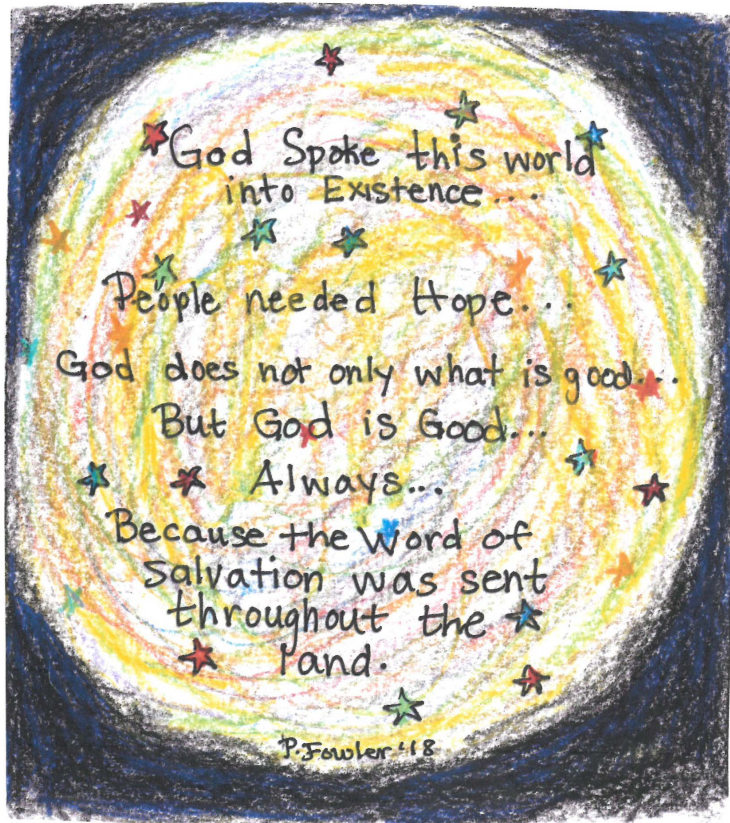 God Spoke this world
into Existence...
People needed Hope...
God does not only what is good...
But God is Good...
Always...
Because the Word of
salvation was sent
throughout the
land.
P. Fowler '18